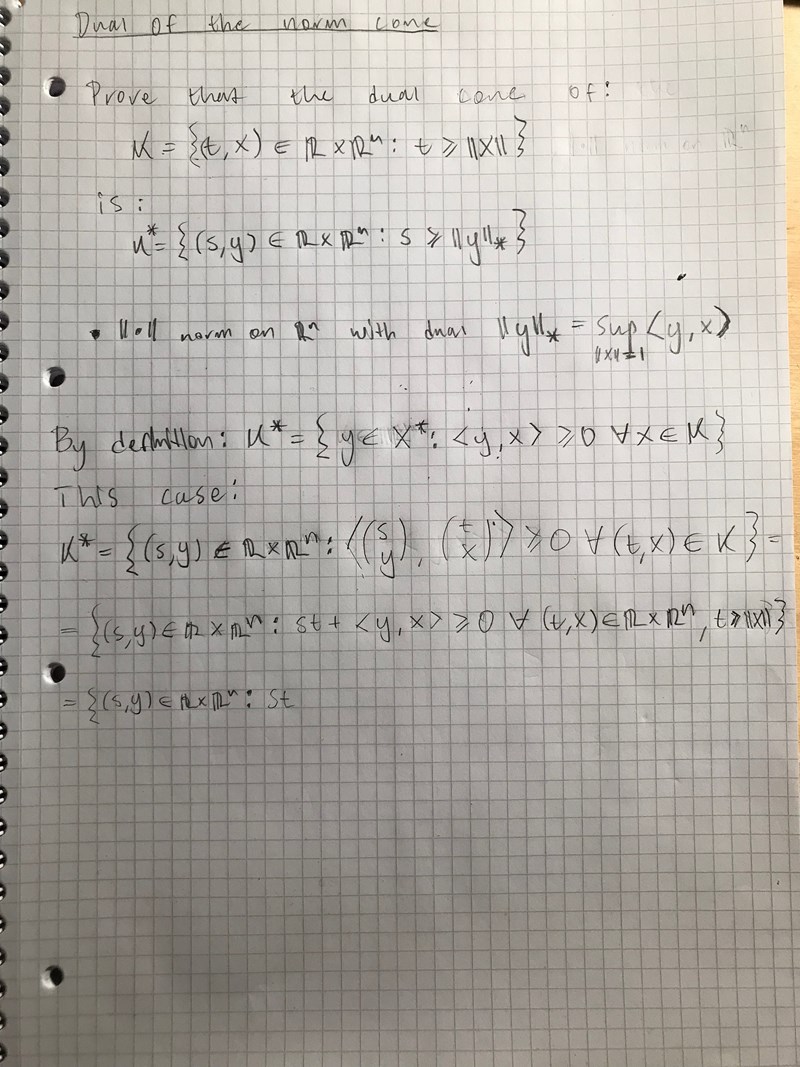 Dual of the norm cone
• Prove that the dual cone of:
K = {(t,x) ∈ ℝ×ℝⁿ : t ≥ ||x||}
is:
K* = {(s,y) ∈ ℝ×ℝⁿ : s ≥ ||y||*}
• ||•|| norm on ℝⁿ with dual ||y||* = sup_{||x||=1} <y,x>
By definition: K* = {y ∈ X* : <y,x> ≥ 0 ∀x ∈ K}
This case:
K* = {(s,y) ∈ ℝ×ℝⁿ : <(s y), (t x)> ≥ 0 ∀(t,x) ∈ K} =
= {(s,y) ∈ ℝ×ℝⁿ : st + <y,x> ≥ 0 ∀ (t,x) ∈ ℝ×ℝⁿ, t ≥ ||x||}
= {(s,y) ∈ ℝ×ℝⁿ : st